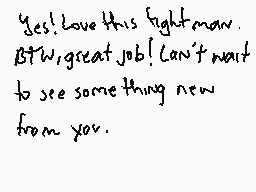 Yes! Love this fight man.
BTW, great job! Can't wait
to see something new
from you.